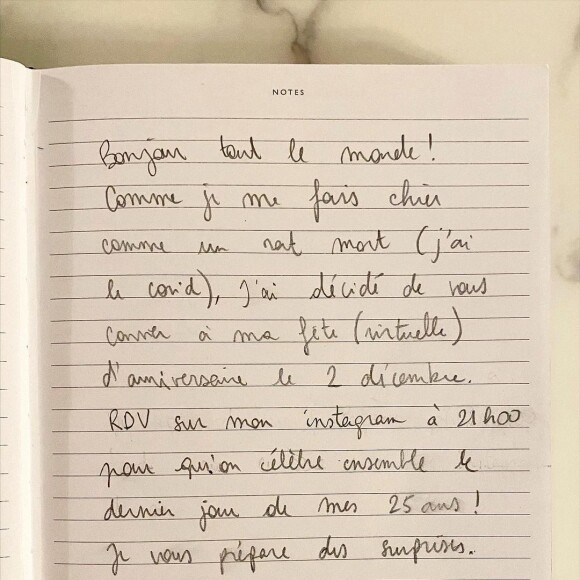 NOTES
Bonjour tout le monde !
Comme je me fais chier
comme un rat mort (j'ai
le covid), j'ai décidé de vous
convier à ma fête (virtuelle)
d'anniversaire le 2 décembre.
RDV sur mon instagram à 21h00
pour qu'on célèbre ensemble le
dernier jour de mes 25 ans !
Je vous prépare des surprises.